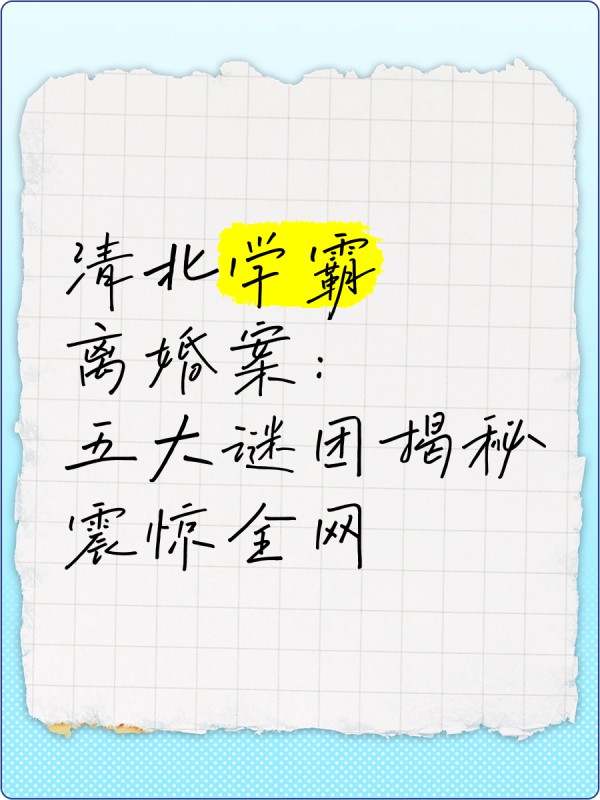 清北学霸
离婚案:
五大谜团揭秘
震惊全网